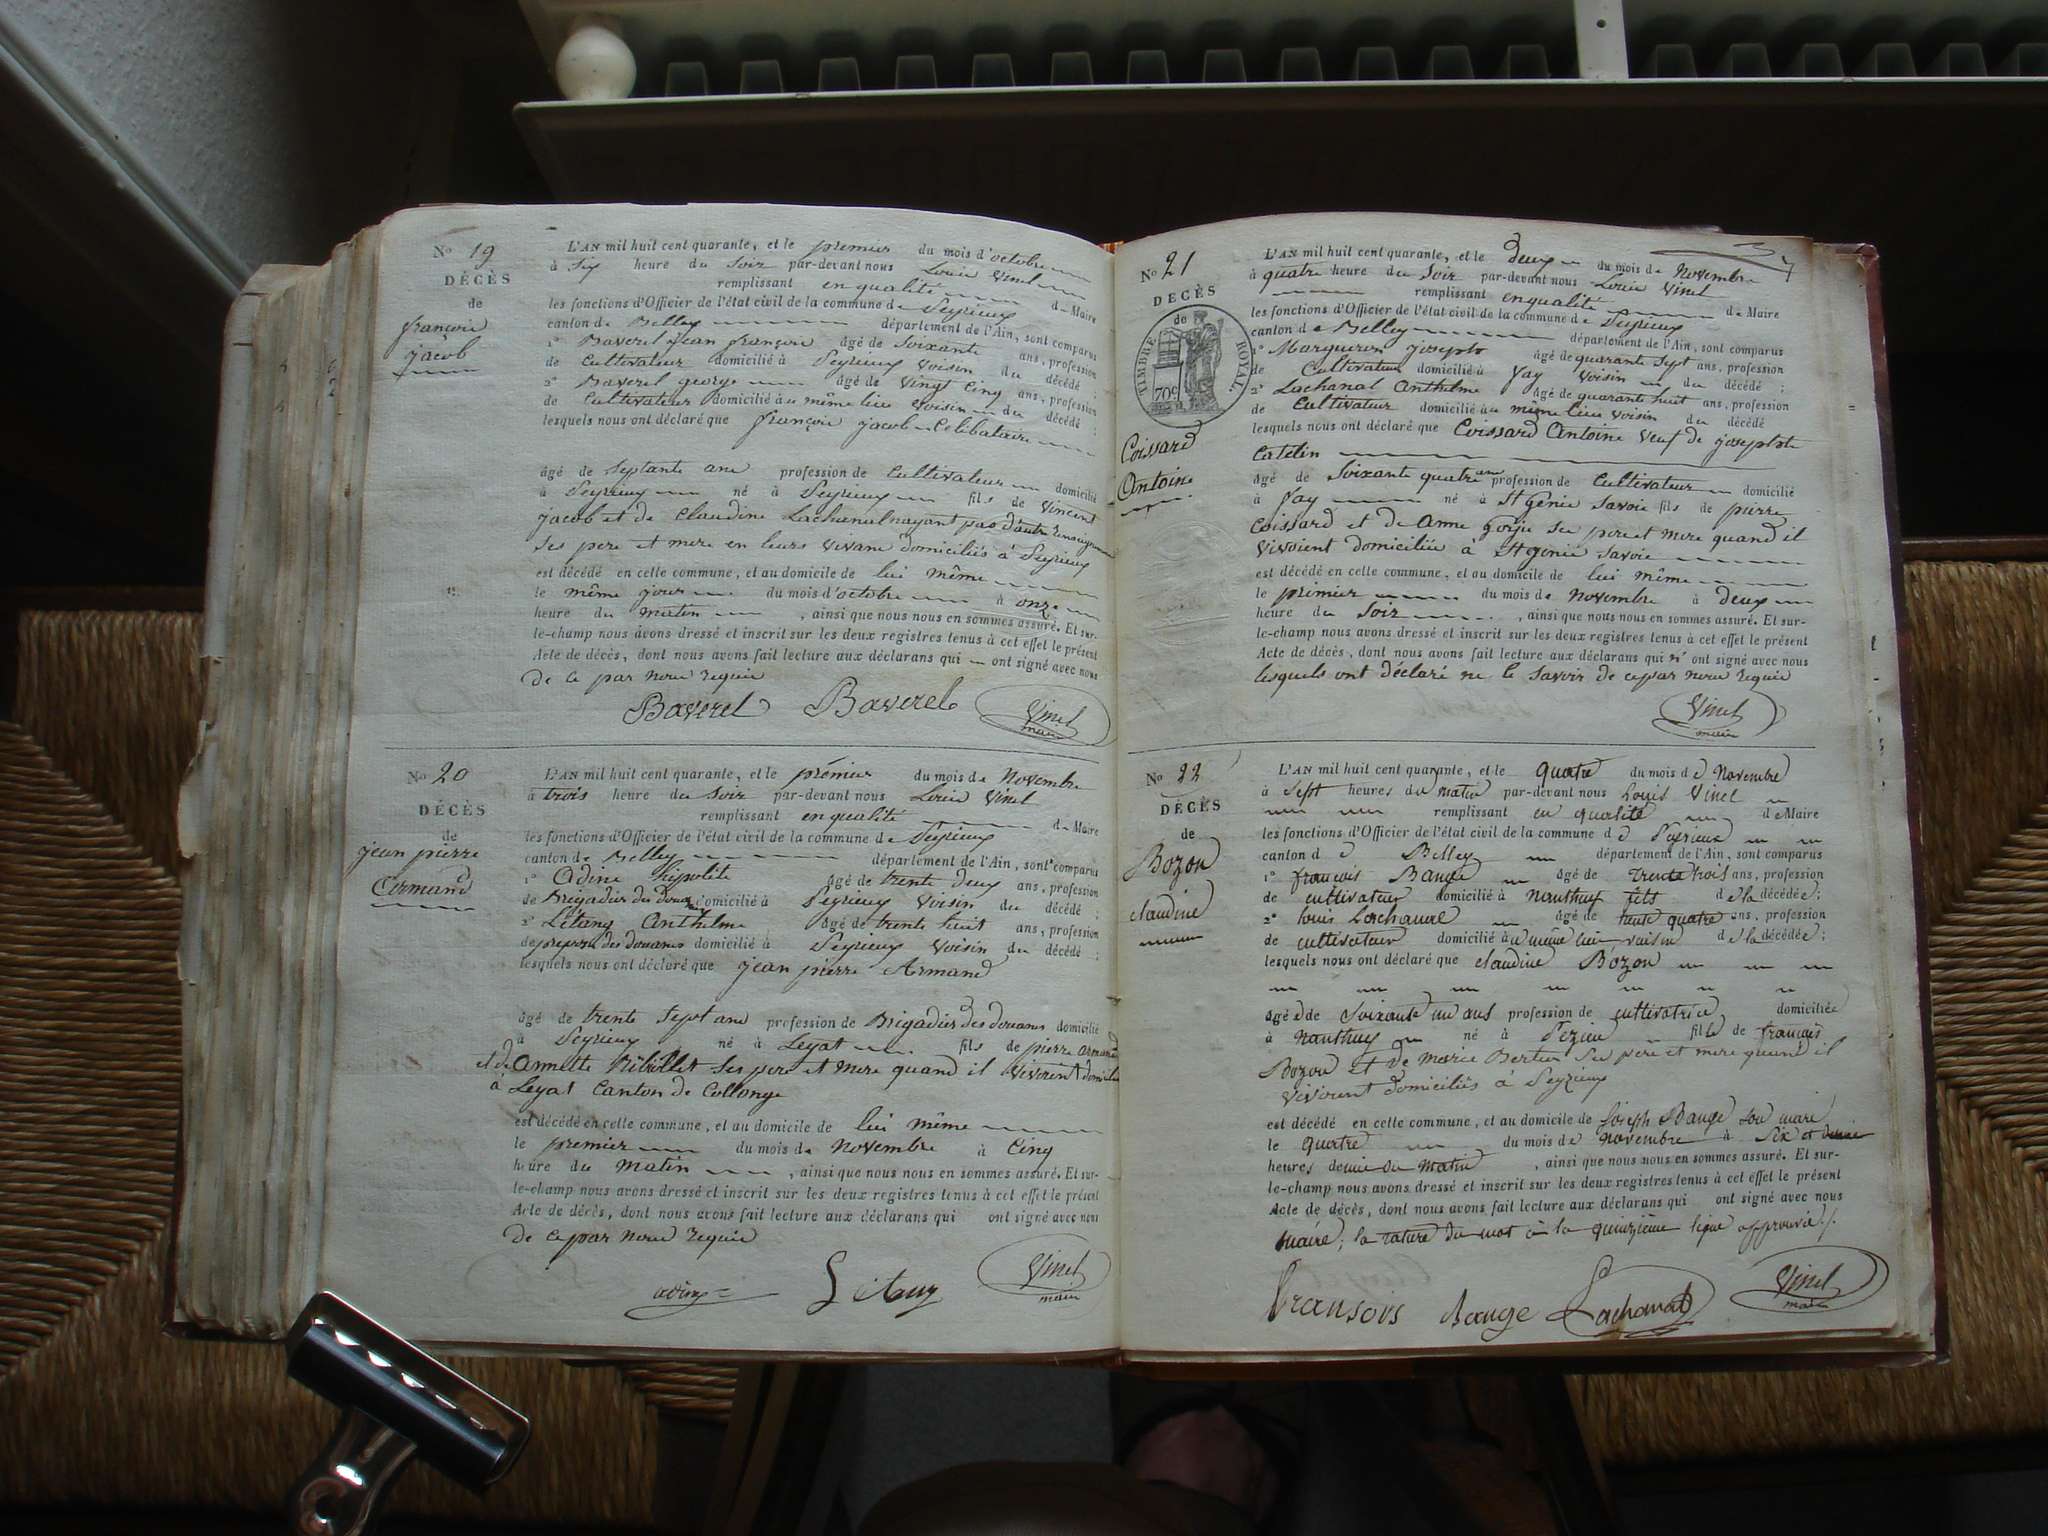 No 19
DÉCÈS
de
françois
jacob
L'AN mil huit cent quarante, et le premier du mois d'octobre
à Six heure du Soir par-devant nous Louis Vinel
remplissant en qualité de Maire
les fonctions d'Officier de l'état civil de la commune de Peyrieux
canton de Belley département de l'Ain, sont comparus
1° Baverel jean françois âgé de Soixante ans, profession
de Cultivateur domicilié à Peyrieux Voisin du décédé ;
2° Baverel george âgé de Vingt Cinq ans, profession
de Cultivateur domicilié au même lieu Voisin du décédé ;
lesquels nous ont déclaré que françois jacob Celibataire
âgé de Septante ans profession de Cultivateur domicilié
à Peyrieux né à Peyrieux fils de Vincent
jacob et de Claudine Lachenal nayant pas d'autre
Ses pere et mere en leurs vivans domiciliés à Peyrieux
est décédé en cette commune, et au domicile de lui même
le même jour du mois d'octobre à onze
heure du matin , ainsi que nous nous en sommes assuré. Et sur-
le-champ nous avons dressé et inscrit sur les deux registres tenus à cet effet le présent
Acte de décès, dont nous avons fait lecture aux déclarans qui ont signé avec nous
de ce par nous requis
Baverel Baverel Vinel
maire
No 20
DÉCÈS
de
jean pierre
Armand
L'AN mil huit cent quarante, et le prémier du mois de Novembre
à trois heure du Soir par-devant nous Louis Vinel
remplissant en qualité de Maire
les fonctions d'Officier de l'état civil de la commune de Peyrieux
canton de Belley département de l'Ain, sont comparus
1° Adine hipolite âgé de trente deux ans, profession
de Brigadier des douanes domicilié à Peyrieux Voisin du décédé ;
2° Létang Anthelme âgé de trente huit ans, profession
de préposé des douanes domicilié à Peyrieux Voisin du décédé ;
lesquels nous ont déclaré que jean pierre Armand
âgé de trente Sept ans profession de Brigadier des douanes domicilié
à Peyrieux né à Leyat fils de pierre armand
et de Annette Ses pere et mere quand il vivoient domiciliés
à Leyat Canton de Collonge
est décédé en cette commune, et au domicile de lui même
le premier du mois de Novembre à Cinq
heure du matin , ainsi que nous nous en sommes assuré. Et sur-
le-champ nous avons dressé et inscrit sur les deux registres tenus à cet effet le présent
Acte de décès, dont nous avons fait lecture aux déclarans qui ont signé avec nous
de ce par nous requis
Vinel
maire
No 21
DÉCÈS
de
TIMBRE ROYAL.
70c
Coissard
Antoine
L'AN mil huit cent quarante, et le deux du mois de Novembre
à quatre heure du Soir par-devant nous Louis Vinel
remplissant en qualité de Maire
les fonctions d'Officier de l'état civil de la commune de Peyrieux
canton de Belley département de l'Ain, sont comparus
1° Marqueron joseph âgé de quarante Sept ans, profession
de Cultivateur domicilié à Fay Voisin du décédé ;
2° Lachanal Anthelme âgé de quarante huit ans, profession
de Cultivateur domicilié au même lieu Voisin du décédé
lesquels nous ont déclaré que Coissard Antoine Veuf de josephte
Catelin
âgé de Soixante quatre ans profession de Cultivateur domicilié
à Fay né à St Génie Savoie fils de pierre
Coissard et de Anne Ses pere et mere quand il
Vivoient domiciliés à St Genie Savoie
est décédé en cette commune, et au domicile de lui même
le premier du mois de Novembre à deux
heure du Soir , ainsi que nous nous en sommes assuré. Et sur-
le-champ nous avons dressé et inscrit sur les deux registres tenus à cet effet le présent
Acte de décès, dont nous avons fait lecture aux déclarans qui n'ont signé avec nous
lesquels ont déclaré ne le Savoir de ce par nous requis
Vinel
maire
No 22
DÉCÈS
de
Bozon
claudine
L'AN mil huit cent quarante, et le quatre du mois de Novembre
à Sept heures du matin par-devant nous Louis Vinel
remplissant en qualité de Maire
les fonctions d'Officier de l'état civil de la commune de Peyrieux
canton de Belley département de l'Ain, sont comparus
1° françois Bauge âgé de trente trois ans, profession
de cultivateur domicilié à Nanthuy fils de la décédée ;
2° louis Lachanal âgé de trente quatre ans, profession
de cultivateur domicilié au même lieu voisin de la décédée ;
lesquels nous ont déclaré que claudine Bozon
âgée de Soixante un ans profession de cultivatrice domiciliée
à Nanthuy né à Pezieu fille de français
Bozon et de Marie Bertin Ses pere et mere quand il
vivoient domiciliés à Peyrieux
est décédé en cette commune, et au domicile de Joseph Bauge son mari
le quatre du mois de novembre à six et demie
heures demie du matin , ainsi que nous nous en sommes assuré. Et sur-
le-champ nous avons dressé et inscrit sur les deux registres tenus à cet effet le présent
Acte de décès, dont nous avons fait lecture aux déclarans qui ont signé avec nous
maire; la rature du mot à la quinzième ligne approuvé
fransois Bauge Lachanal Vinel
maire